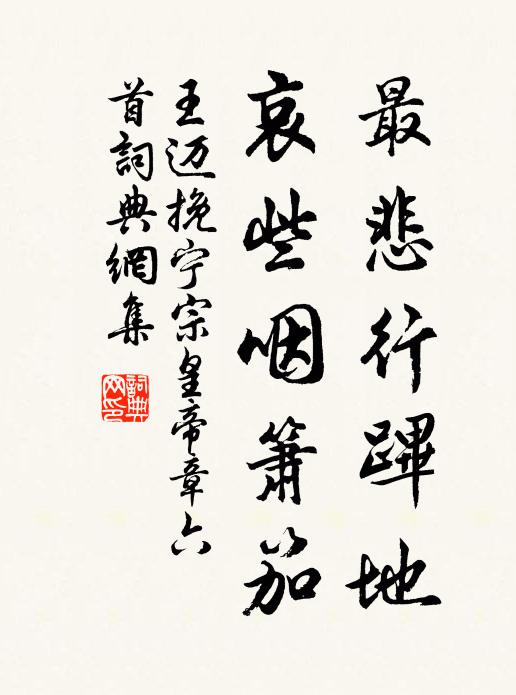 最悲行蹕地
哀些咽簫笳
王迈挽宁宗皇帝章六
首詞典網集
詞典网印